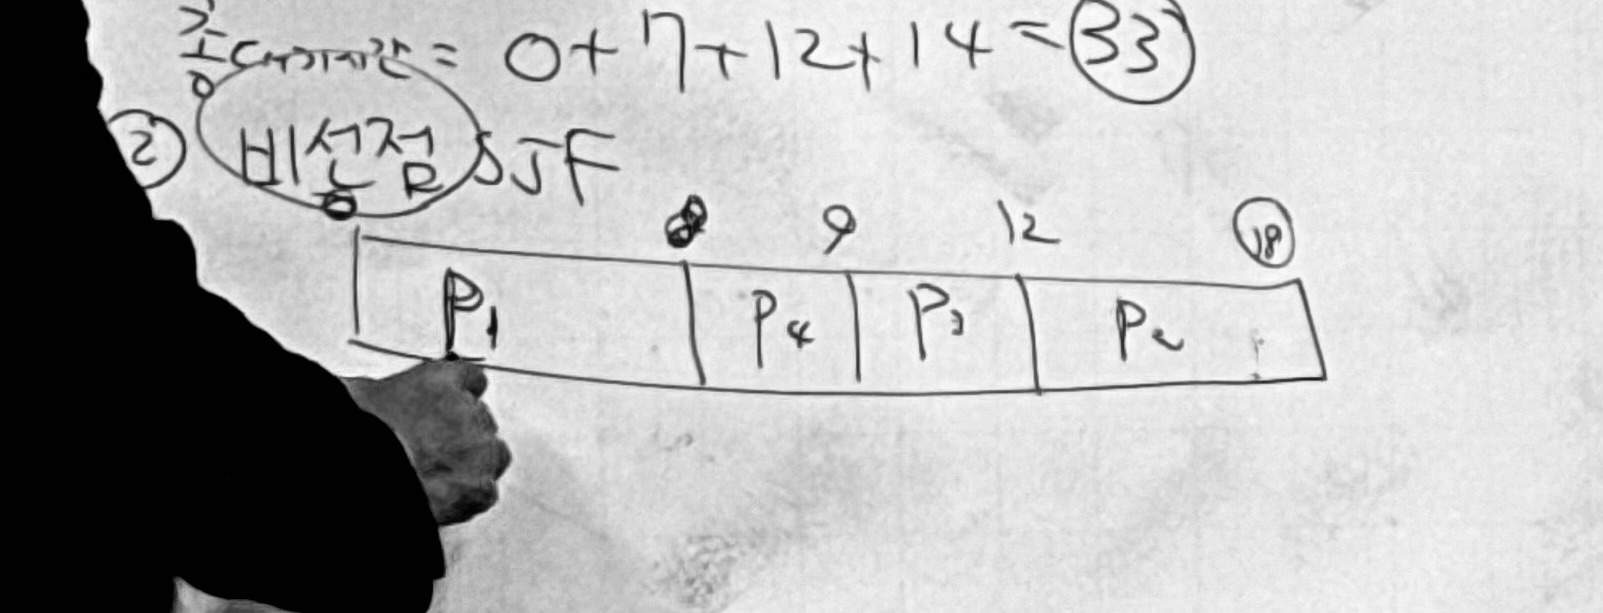 총대기시간 = 0+7+12+14=33
② 비선점 SJF
0 8 9 12 18
P1 P4 P3 P2